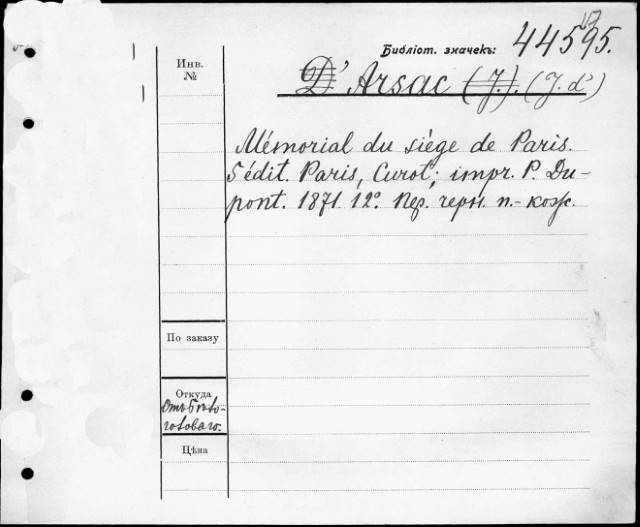 Библіот. значекъ: 44595.
17
Инв.
№
D' Arsac (J.). (J. d')
Mémorial du siége de Paris.
5 édit. Paris, Curot; impr. P. Du-
pont. 1871. 12°. Пер. черн. п.-кож.
По заказу
Откуда
Отъ
Цѣна